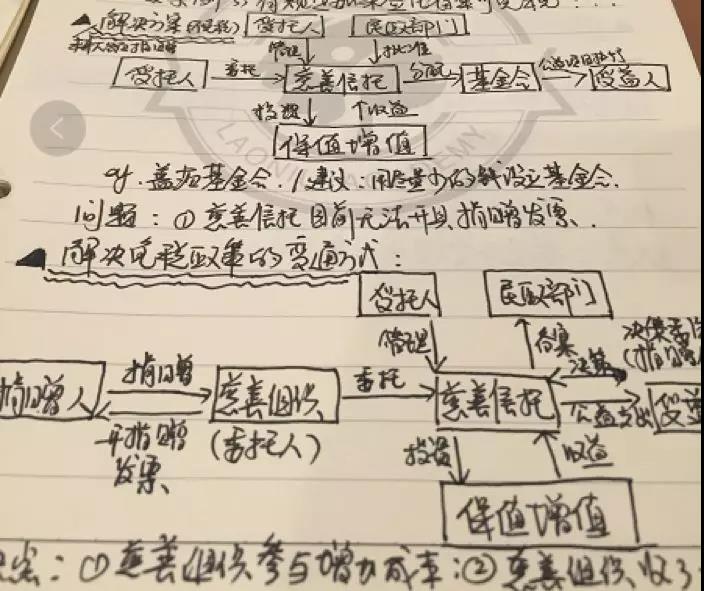 解决方案(不免税) 受托人 民政部门
管理 批准
受托人 委托 慈善信托 分配 基金会 公益项目执行 受益人
投资 收益
保值增值
LAONIU ACADEMY
eg. 盖茨基金会. / 建议:用尽量少的钱设立基金会.
问题:① 慈善信托目前无法开具捐赠发票.
解决免税政策的变通方式:
受托人 民政部门
管理 备案 决策
捐赠人 捐赠 慈善组织 委托 慈善信托 公益支出 受益
开捐赠 (委托人) 投资 收益
发票
保值增值
① 慈善组织参与增加成本;② 慈善组织收了